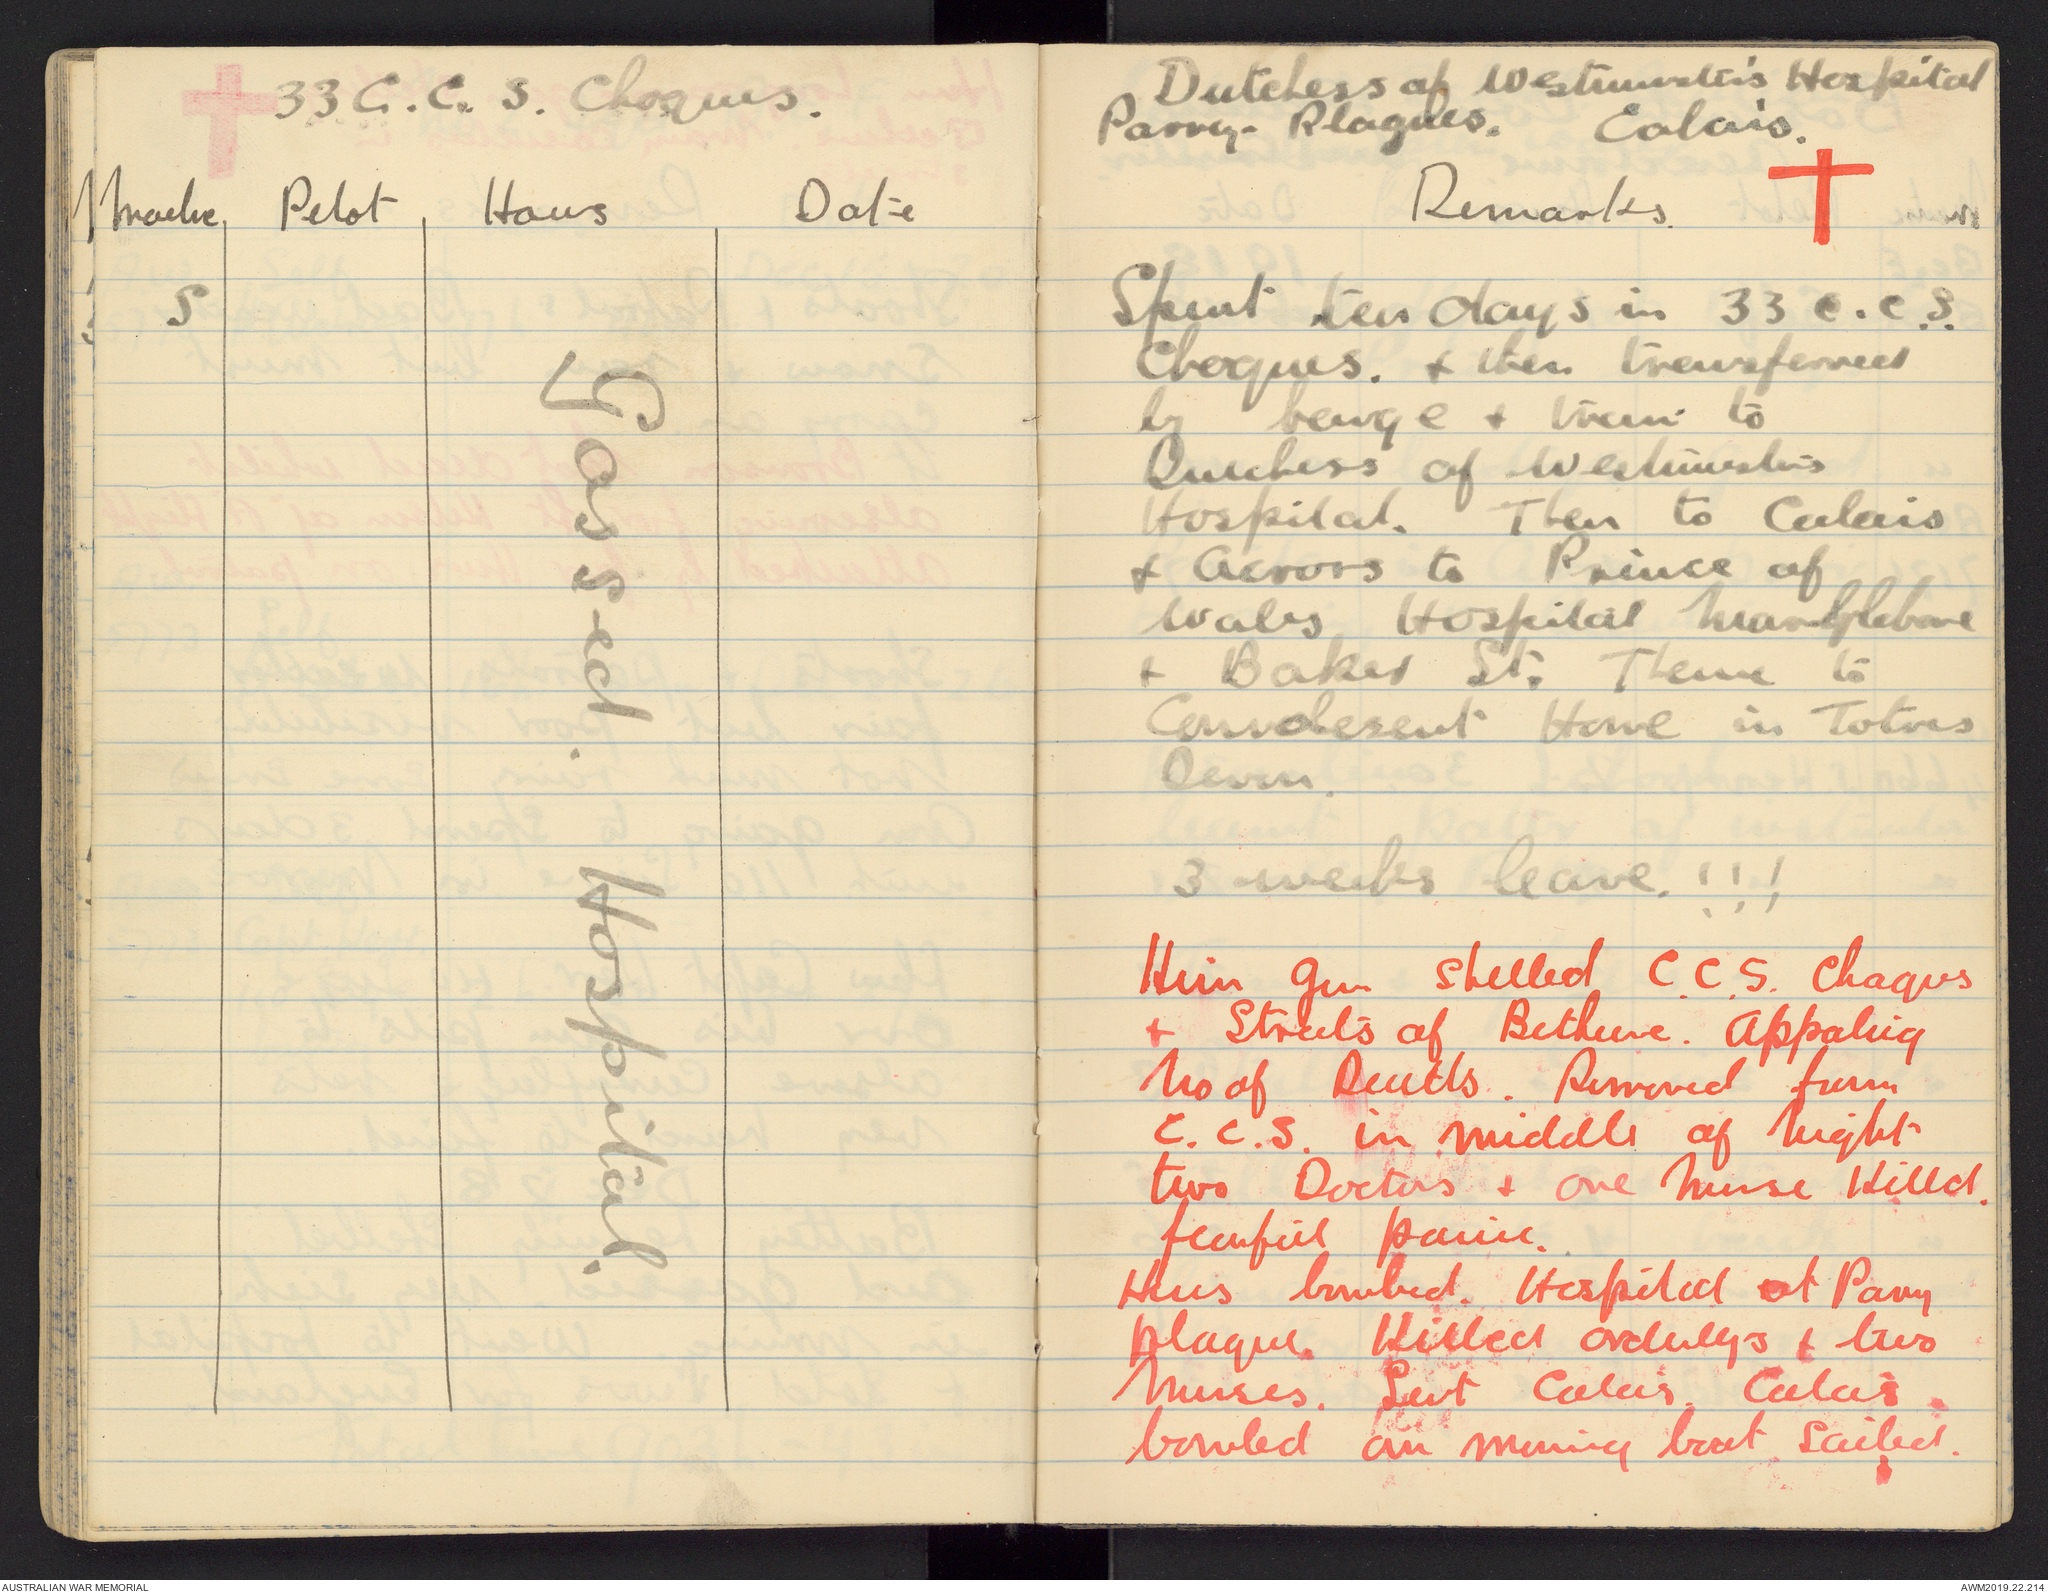 33 C.C.S. Choques.
Mache Pilot Hours Date
S
Gassed. Hospital.
Dutchess of Westminsters Hospital
Parny-Plagues. Calais.
Remarks.
Spent ten days in 33 C.C.S.
Choques. & then transferred
by barge & train to
Duchess of Westminsters
Hospital. Then to Calais
& across to Prince of
Wales Hospital Maralylebone
& Baker St. Thence to
Convalesent Home in Totnes
Devon.
3 weeks leave.!!!
Hun Gun Shelled C.C.S. Choques
& Streets of Bethune. Appaling
No of Deaths. Removed from
C.C.S. in middle of night
two Doctors & one nurse Killed.
fearful panic.
Huns bombed. Hospital at Parny
Plague. Killed orderlys & two
Nurses. Left Calais. Calais
bombed on morning boat Sailed.
AUSTRALIAN WAR MEMORIAL
AWM2019.22.214